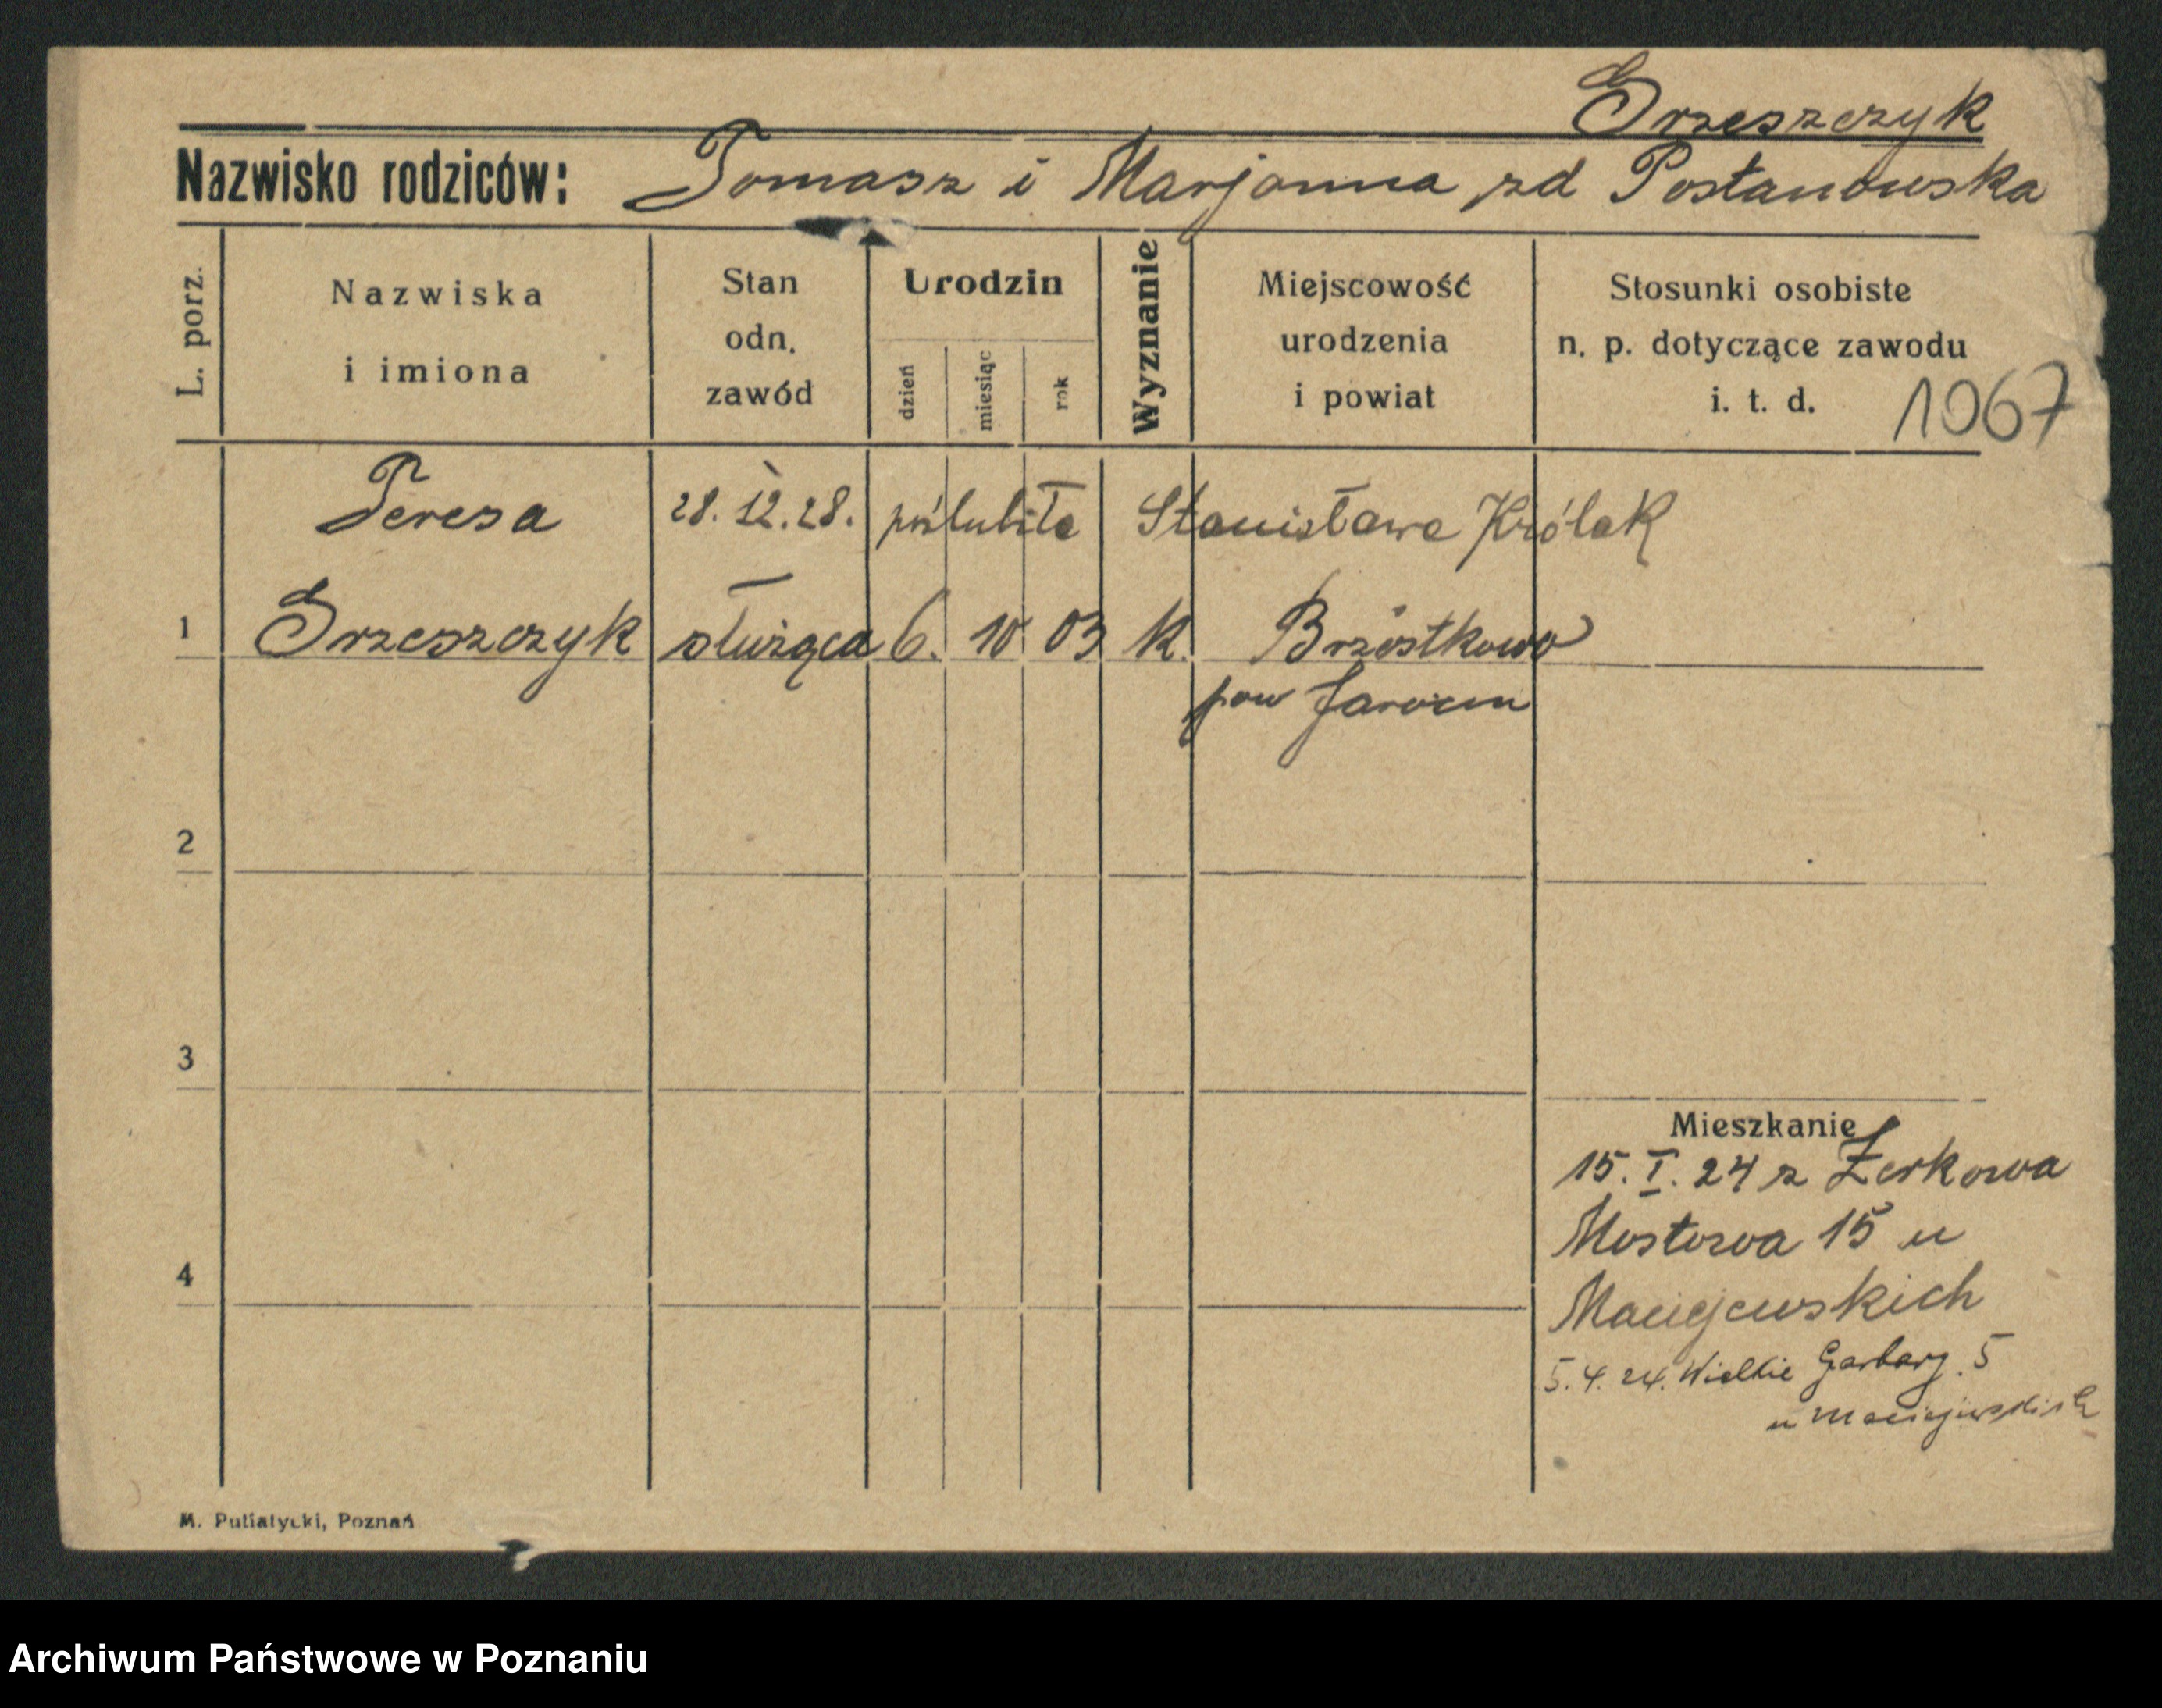 Grzeszczyk
Nazwisko rodziców: Tomasz i Marjanna zd Postanowska
L. porz.
Nazwiska
i imiona
Stan
odn.
zawód
Urodzin
dzień
miesiąc
rok
Wyznanie
Miejscowość
urodzenia
i powiat
Stosunki osobiste
n. p. dotyczące zawodu
i. t. d.
1067
Teresa 28.12.28. poślubiła Stanisława Królak
1 Grzeszczyk służąca 6. 10 03 k. Brzóstkowo
pow Jarocin
2
3
Mieszkanie
15. I. 24 z Żerkowa
Mostowa 15 u
4
Maciejewskich
5. 4. 24. Wielkie Garbary. 5
u Maciejewskich
M. Putiatycki, Poznań
Archiwum Państwowe w Poznaniu